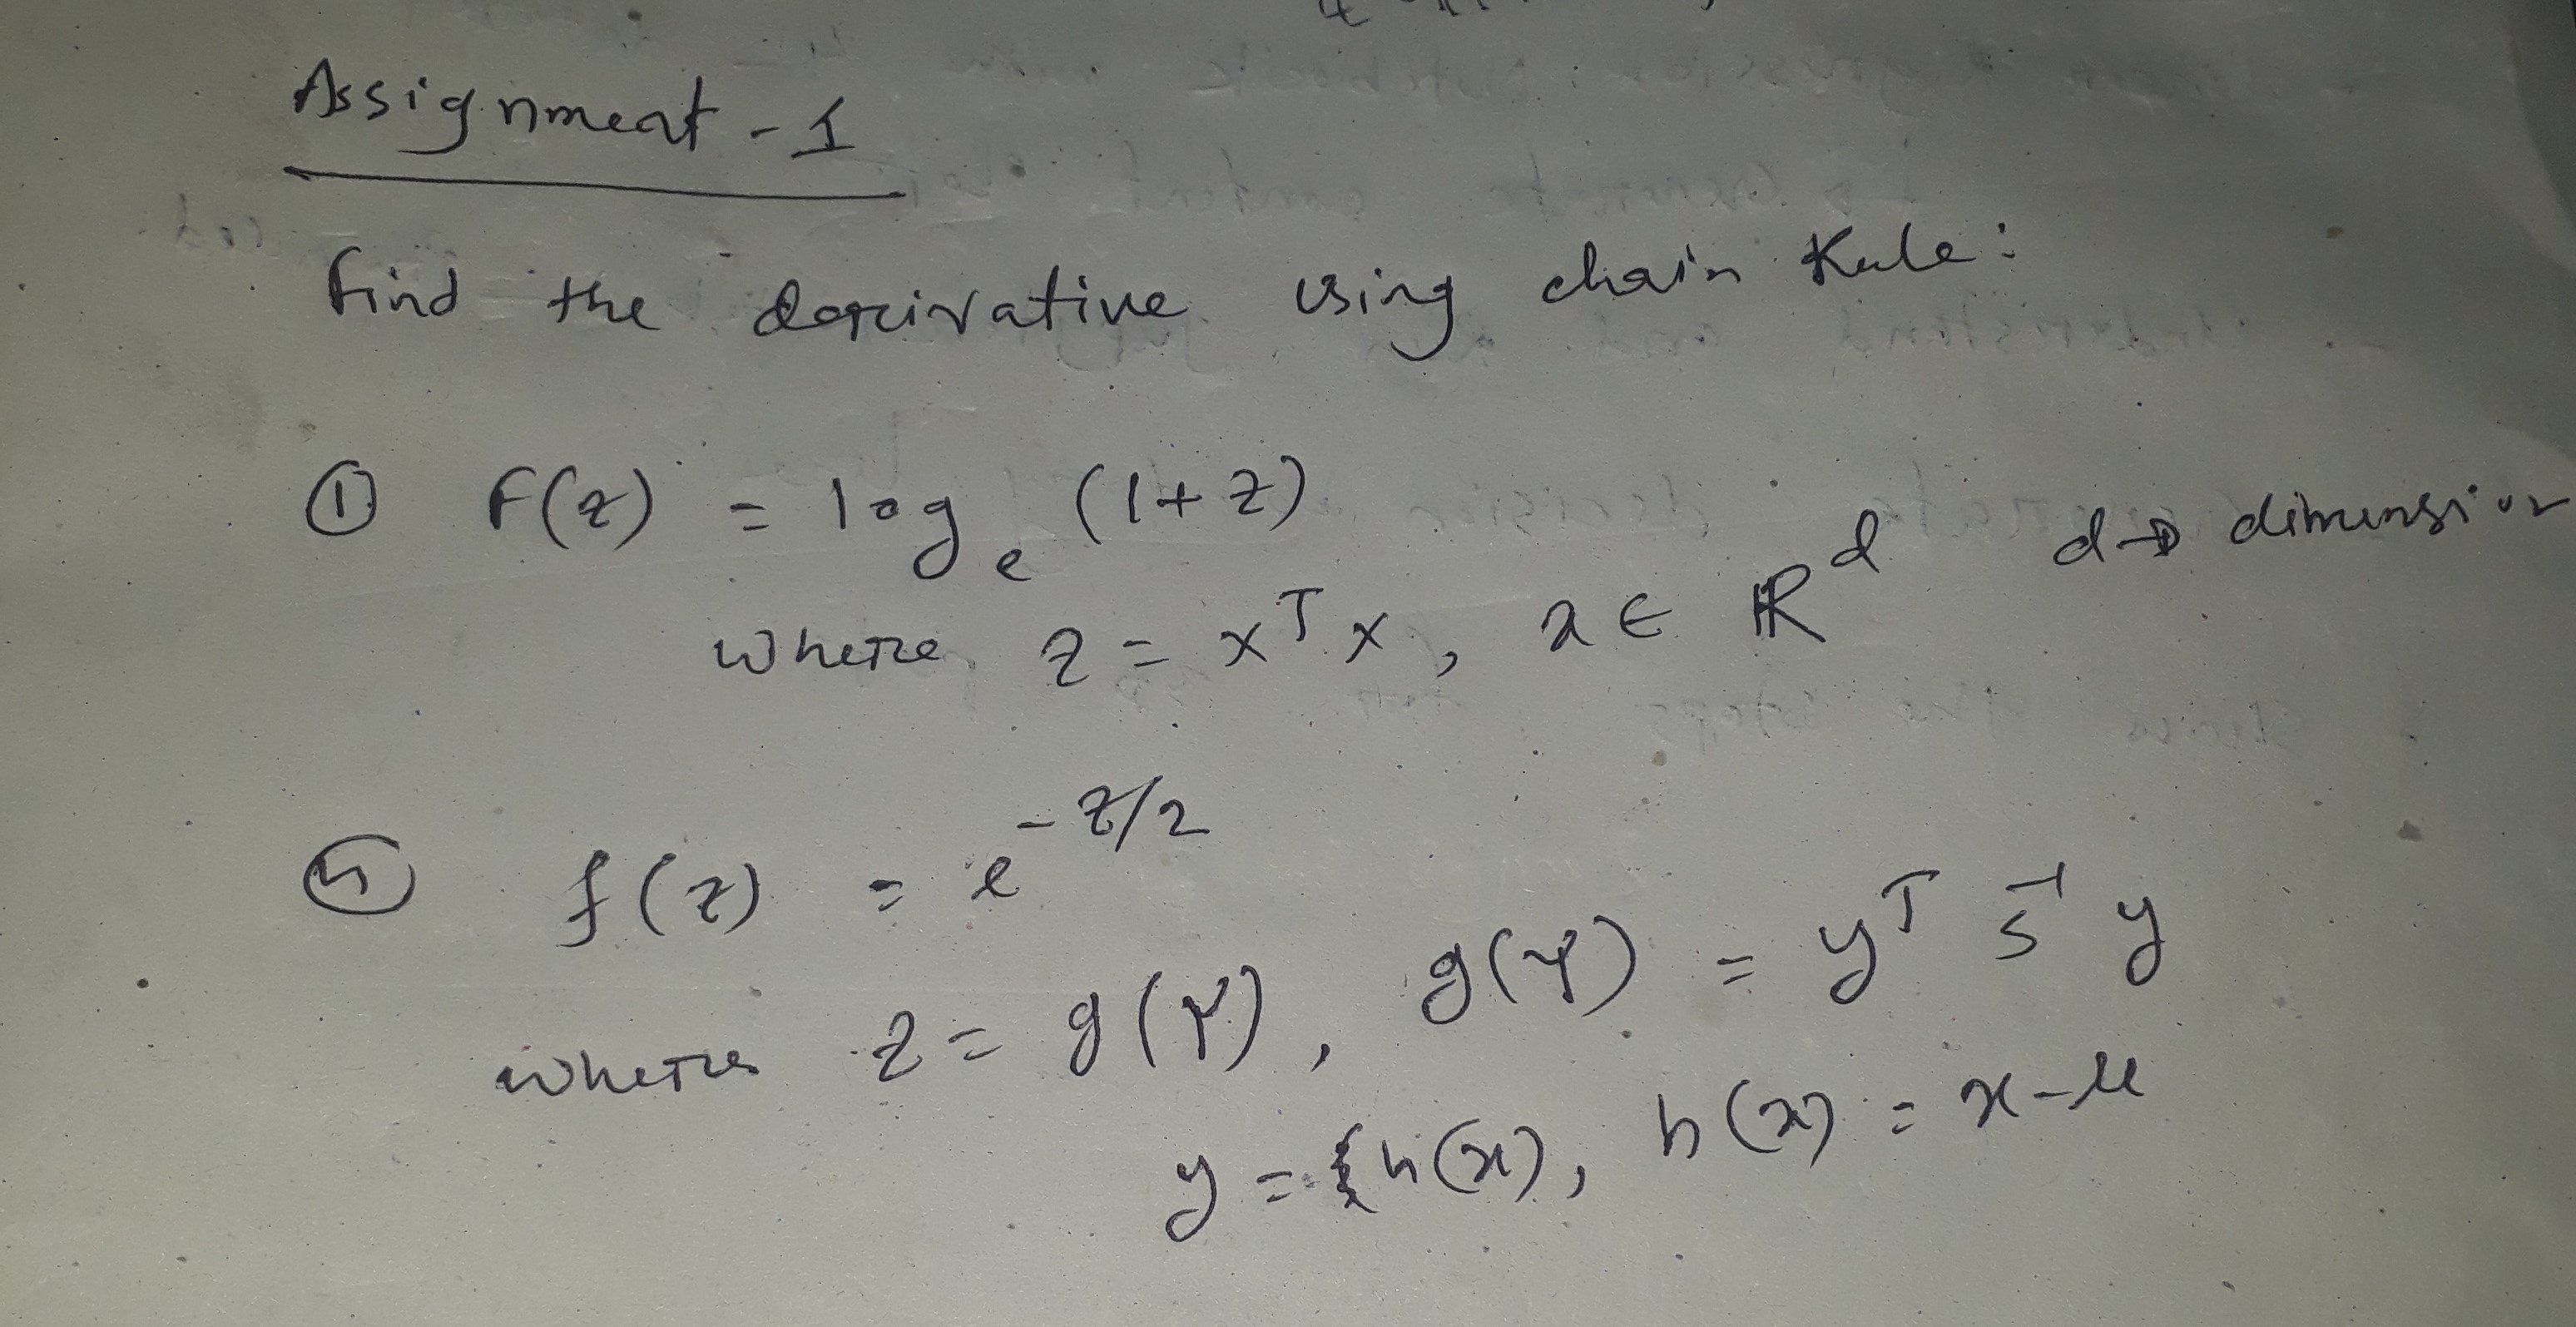 Assignment - 1
Find the derivative using chain Rule:
① f(z) = logₑ (1+z)
where z = xᵀx, x ∈ ℝᵈ d → dimension
② f(z) = e^(-z/2)
where z = g(y), g(y) = yᵀ S⁻¹ y
y = h(x), h(x) = x-μ